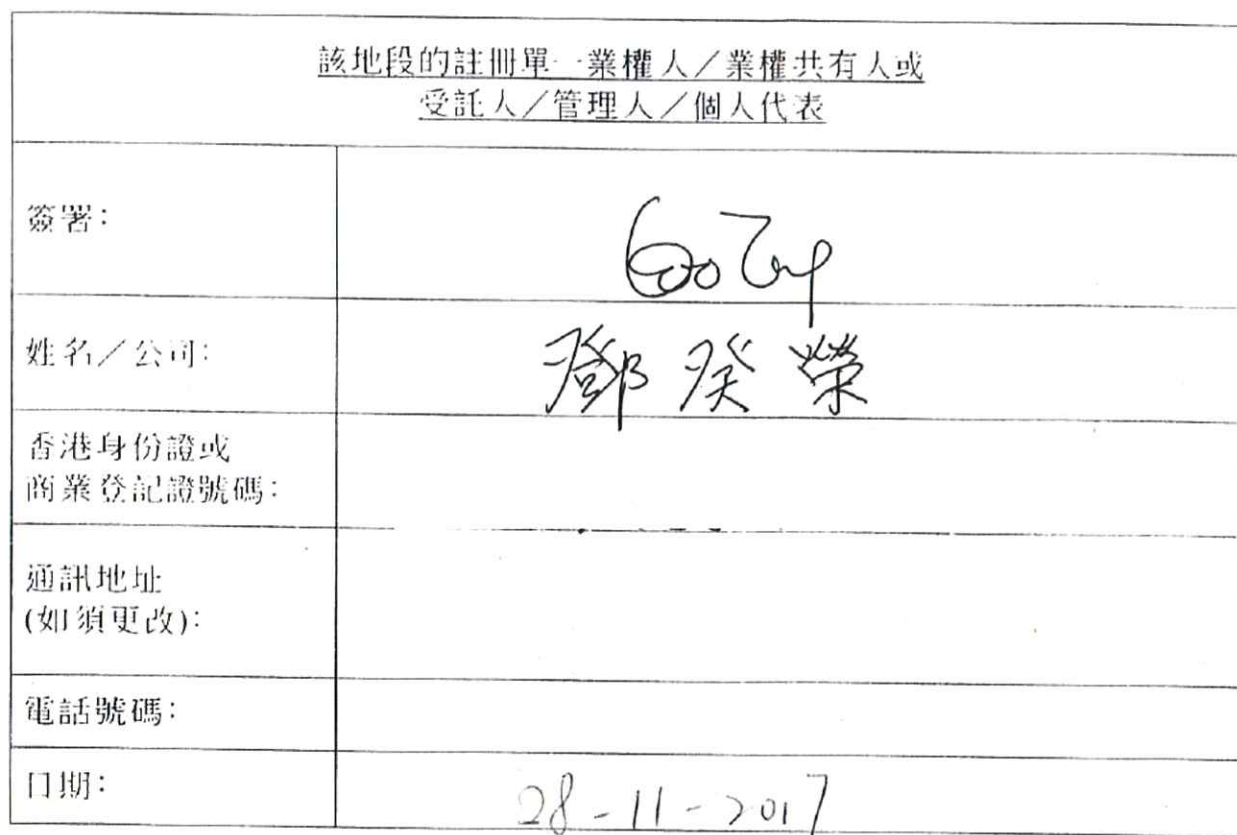 該地段的註冊單一業權人／業權共有人或
受託人／管理人／個人代表
簽署：
姓名／公司：
鄧癸榮
香港身份證或
商業登記證號碼：
通訊地址
(如須更改)：
電話號碼：
日期：
28-11-2017